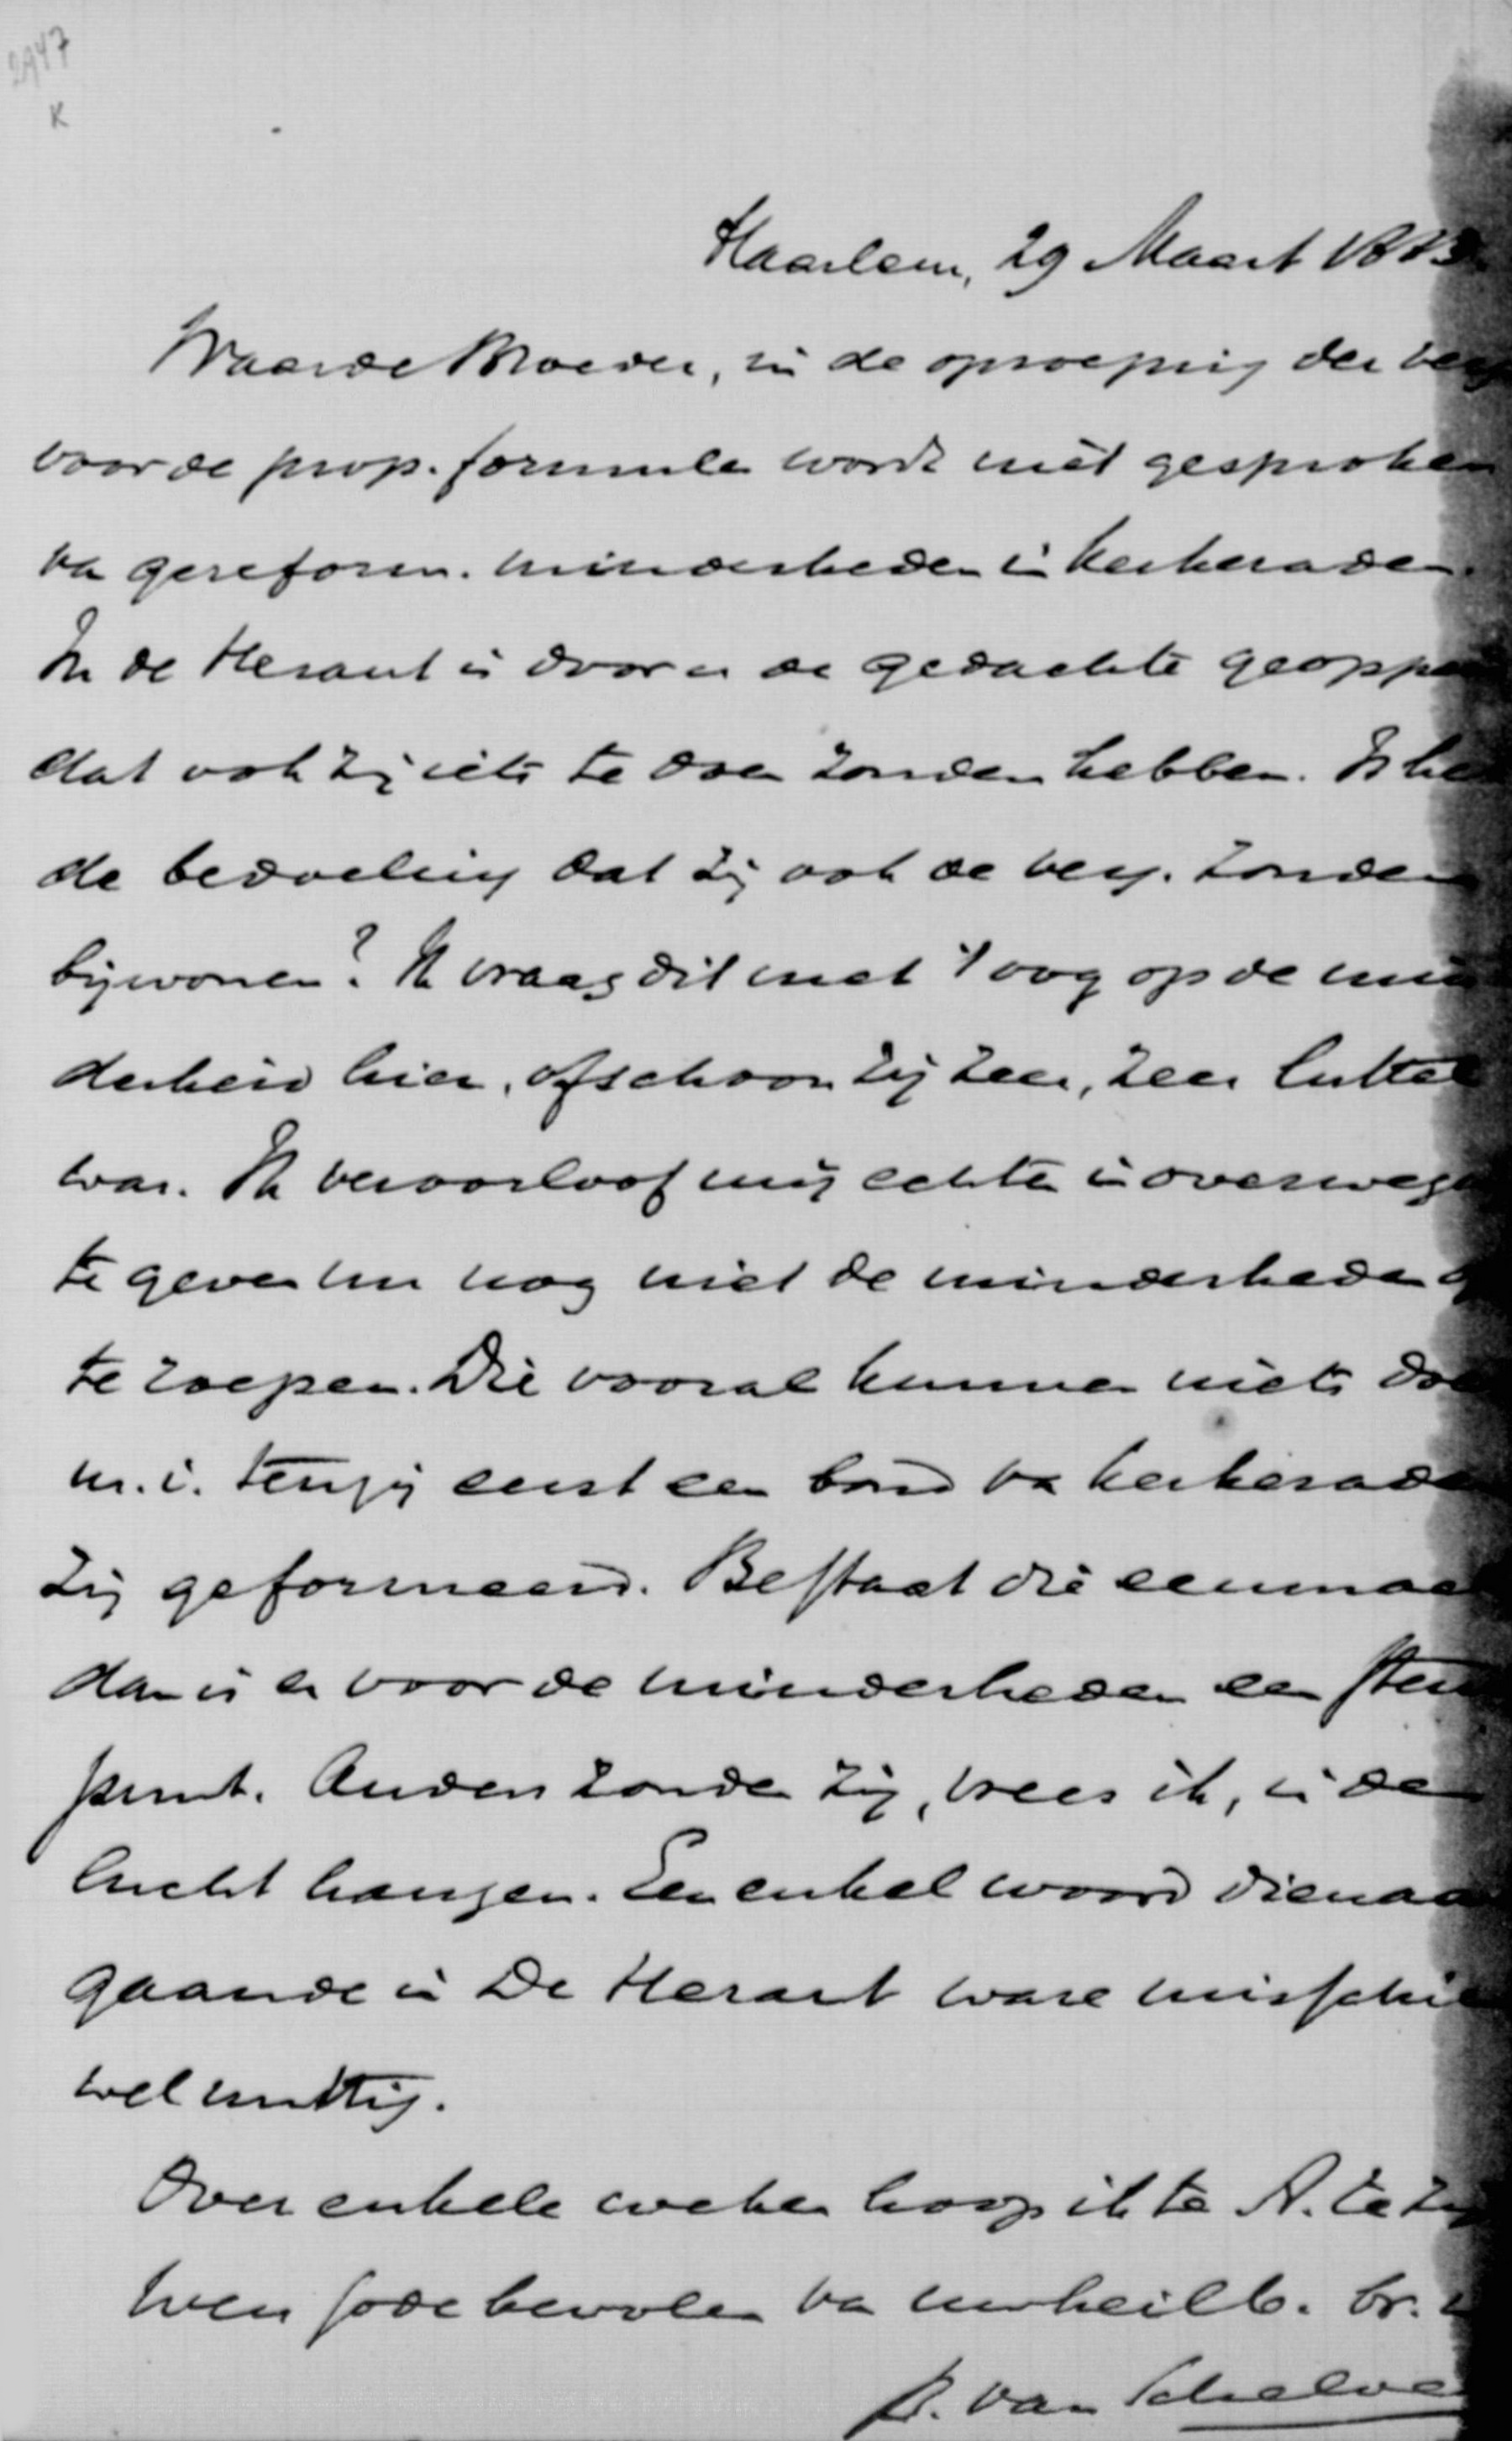 2947
K
Haarlem, 29 Maart 1883.
Waarde Broeder, in de oproeping der verg
voor de prop. formule wordt niet gesproken
van gereform. minderheden in kerkeraden.
In de Heraut is door u de gedachte geoppe
dat ook zij iets te doen zouden hebben. Is he
de bedoeling dat zij ook de verg. zouden
bijwonen? Ik vraag dit met 't oog op de min
derheid hier, ofschoon zij zeer, zeer luttel
war. Ik veroorloof mij echter in overweg
te geven nu nog niet de minderheden o
te roepen. Die vooral kunnen niets doe
m.i. tenzij eerst een bond van kerkerade
zij geformeerd. Bestaat die eenmaa
dan is er voor de minderheden een steu
punt. Anders zouden zij, vrees ik, in de
lucht hangen. Een enkel woord dienaa
gaande in De Heraut ware misschie
wel nuttig.
Over enkele weken hoop ik te A. te zij
Wees Gode bevolen van uw heilb. br.
B. van Schelve